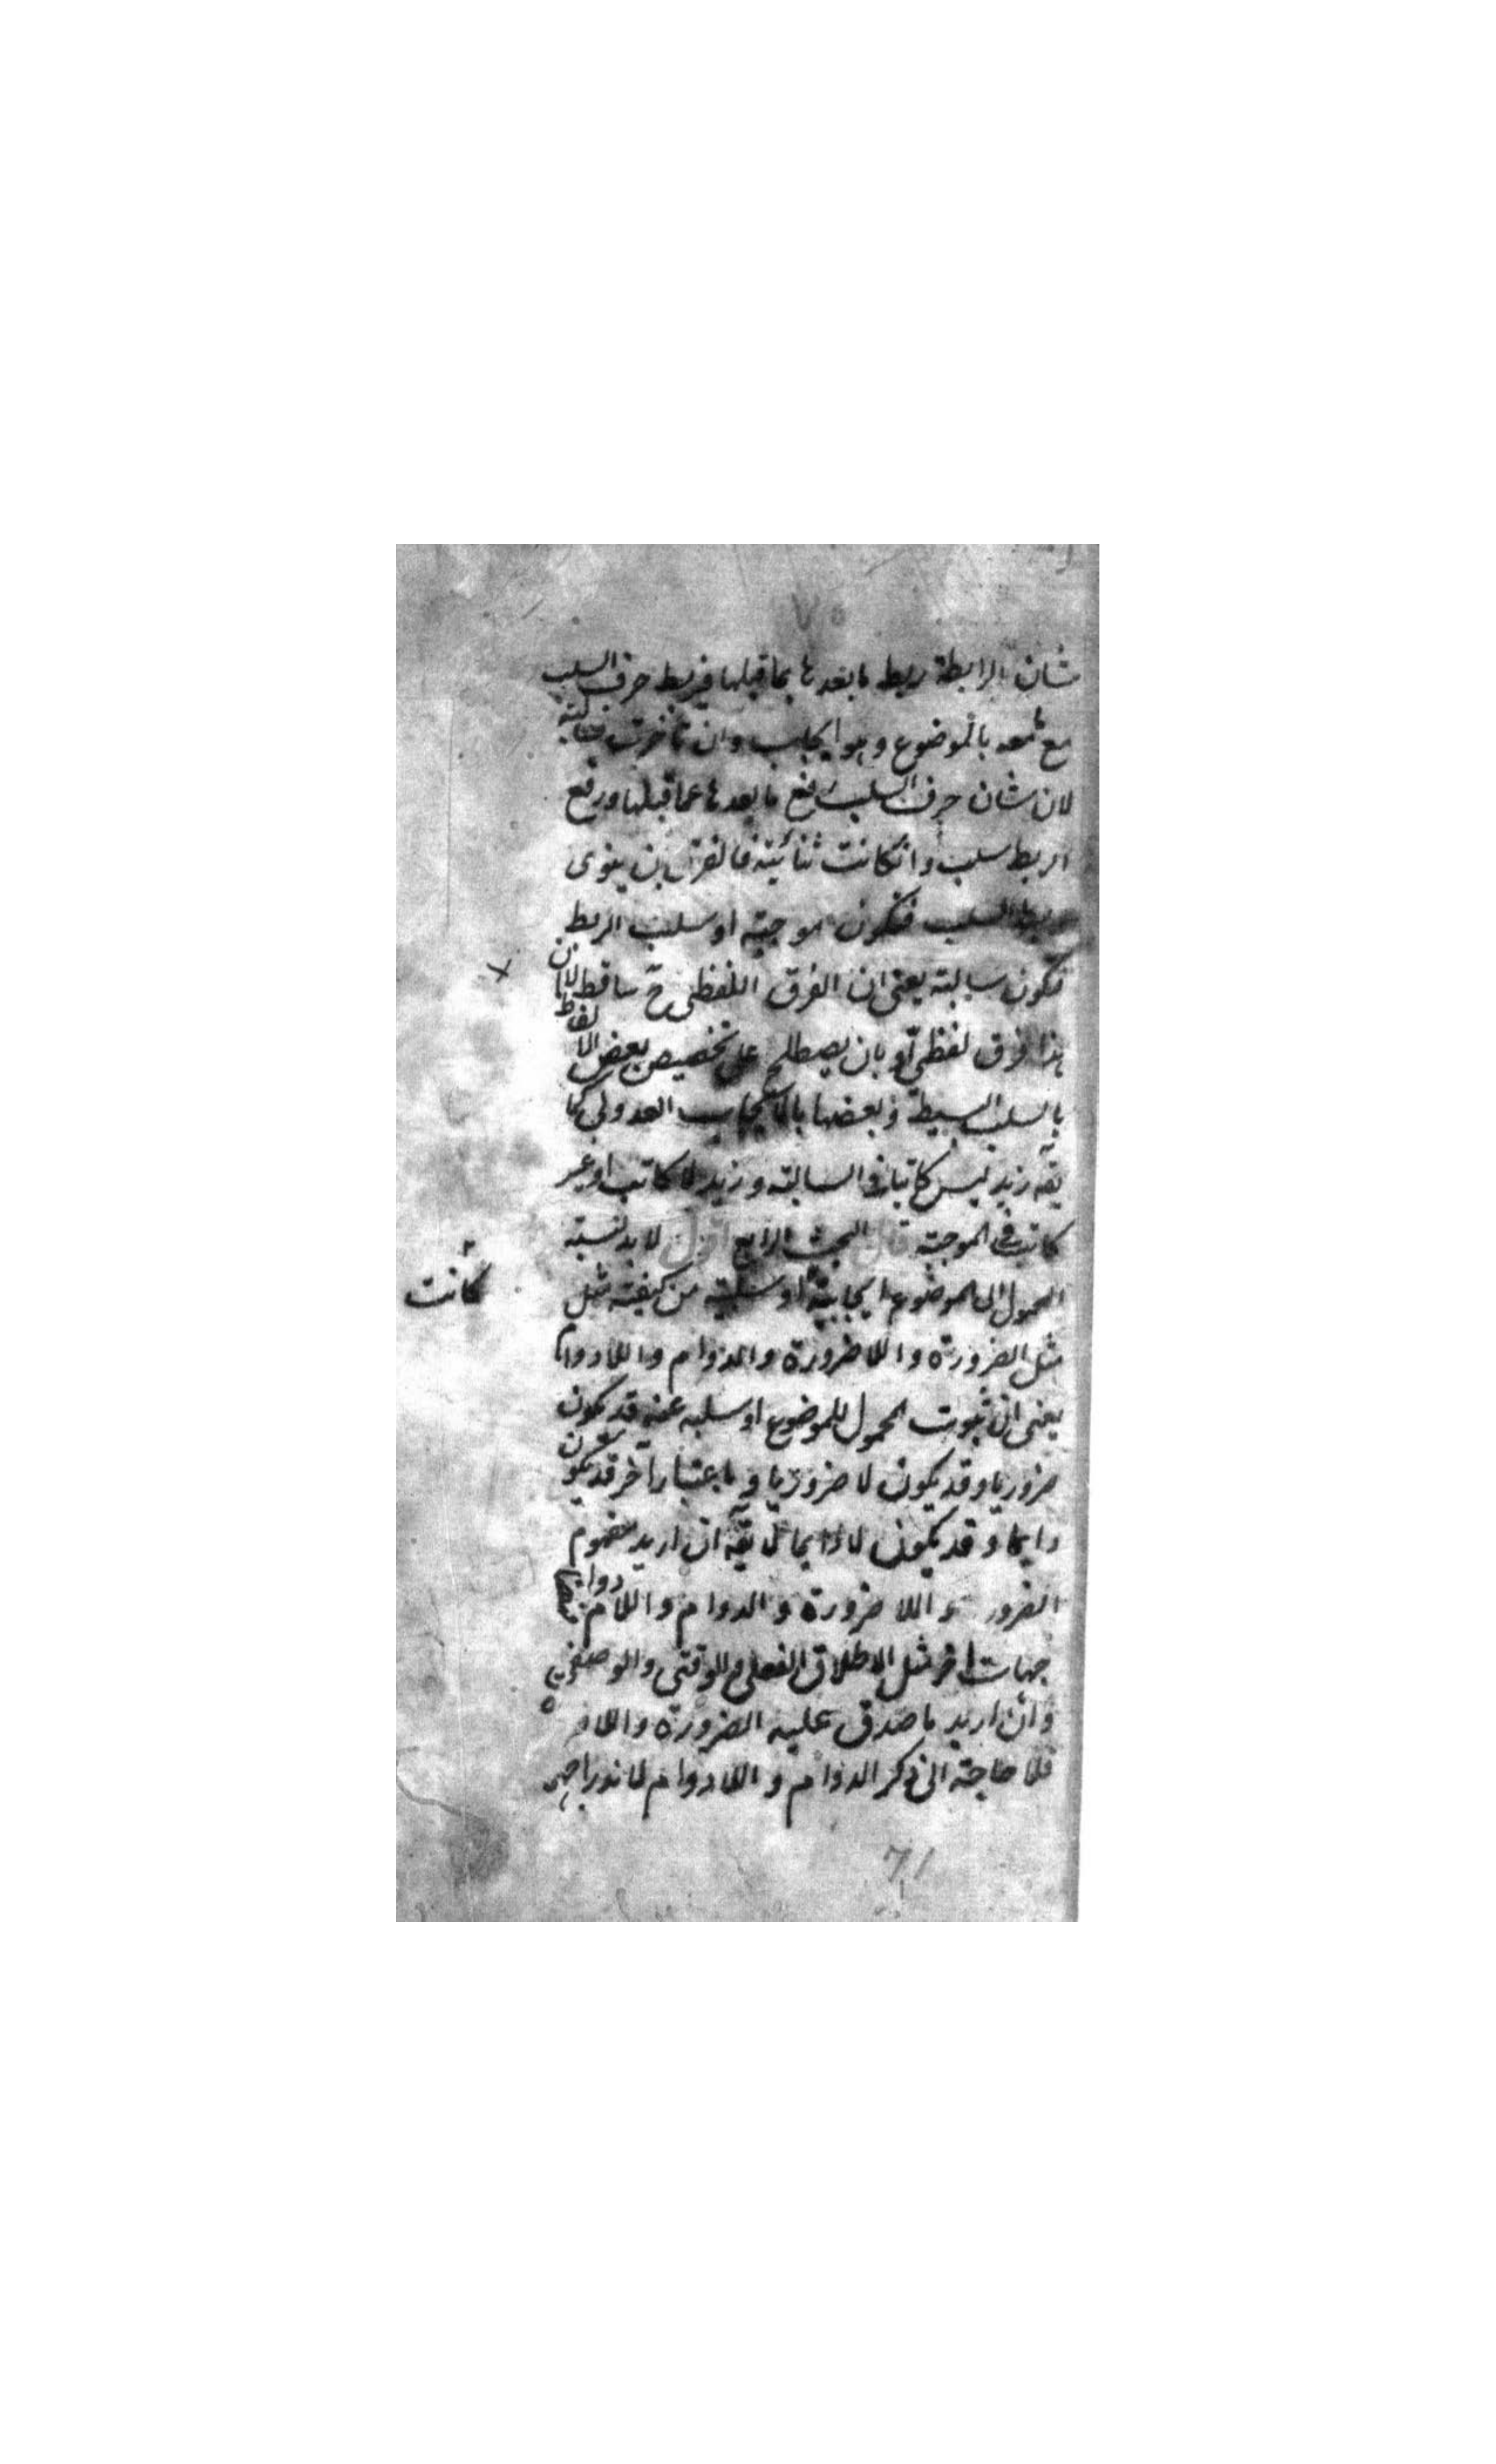 ٧٥
شان الرابطة ربط ما بعدها بما قبلها فيربط حرف السلب
مع ما معه بالموضوع وهو ايجاب وان تاخرت فسالبته
لان شان حرف السلب رفع ما بعدها عما قبلها ورفع
الربط سلب وانكانت ثنائيته فالفرق بان ينوى
ربط السلب فتكون موجبته او سلب الربط
فتكون سالبته يعنى ان الفرق اللفظى ح ساقط لان
هذا فرق لفظى او بان يصطلح على تخصيص بعض الالفاظ
بالسلب البسيط وبعضها بالايجاب العدولى كما
يقه زيد ليس كاتبا فى السالبته وزيد لا كاتب او غير
كاتب فى الموجبته قال البحث الرابع اقول لا بد لنسبته
المحمول الى الموضوع ايجابيته او سلبيته من كيفيته مثل
كانت
مثل الضرورة واللاضرورة والدوام واللادوام
يعنى ان ثبوت المحمول للموضوع او سلبه عنه قد يكون
ضروريا وقد يكون لا ضروريا وباعتبار آخر قد يكون
دايما وقد يكون لا دايما لا يقه ان اريد مفهوم
الضرورة واللا ضرورة والدوام واللادوام
جهات اخر مثل الاطلاق الفعلى والوقتى والوصفى
وان اريد ما صدق عليه الضرورة واللاضر
فلا حاجته الى ذكر الدوام واللادوام لاندراجه
71